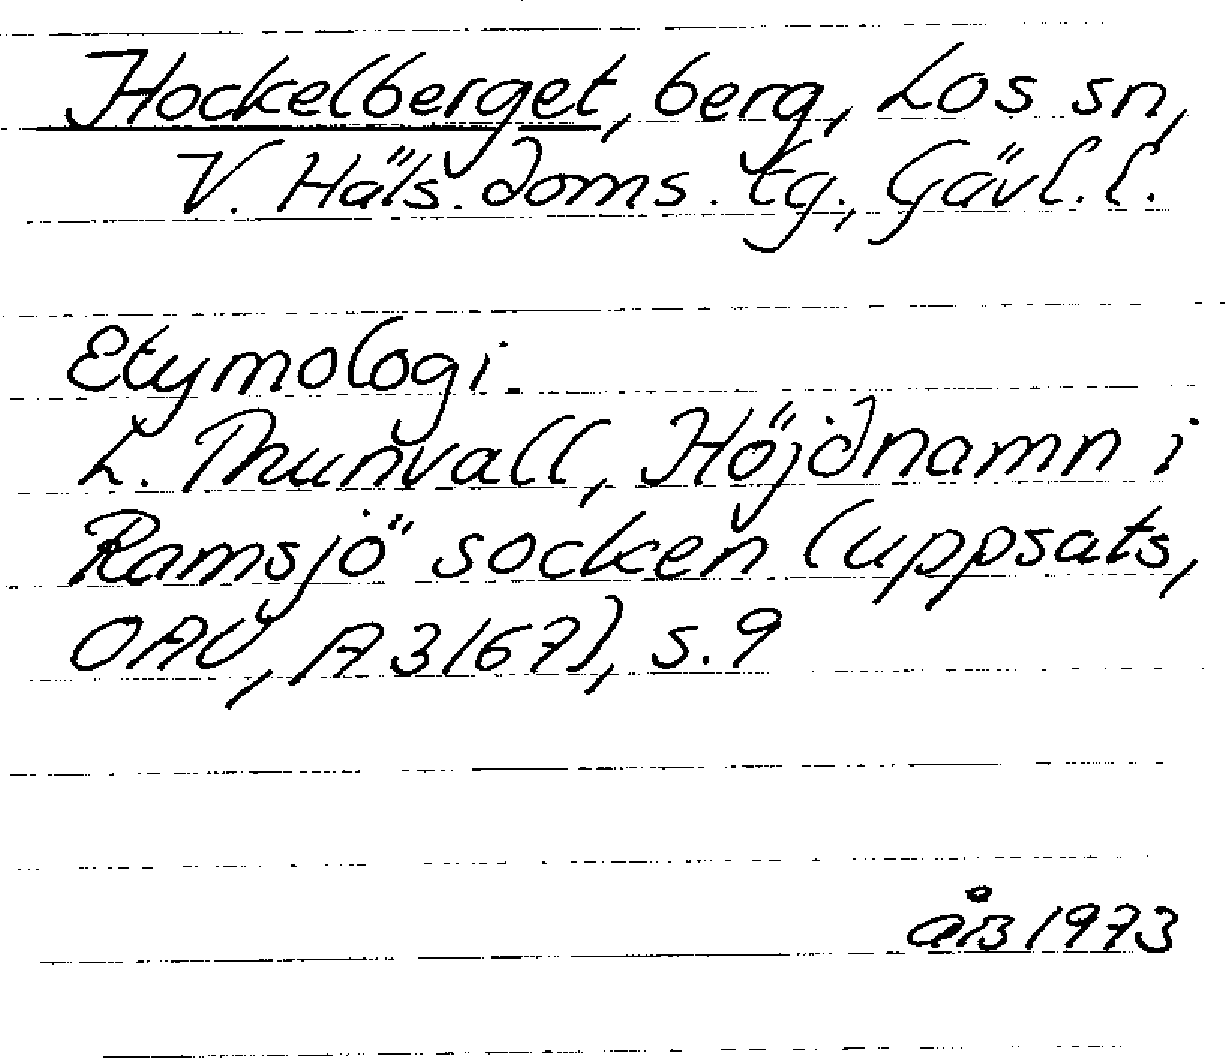 Hockelberget, berg, Los sn,
V. Häls. doms. tg., Gävl. l.
Etymologi.
L. Thunvall, Höjdnamn i
Ramsjö socken (uppsats,
OAU, A 3167), s. 9
åB 1973